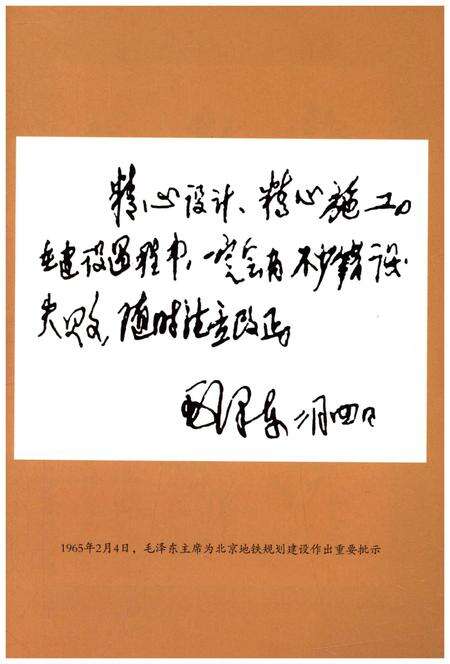 精心设计、精心施工。
在建设过程中,一定会有不少错误
失败,随时注意改正。
毛泽东 二月四日
1965年2月4日，毛泽东主席为北京地铁规划建设作出重要批示